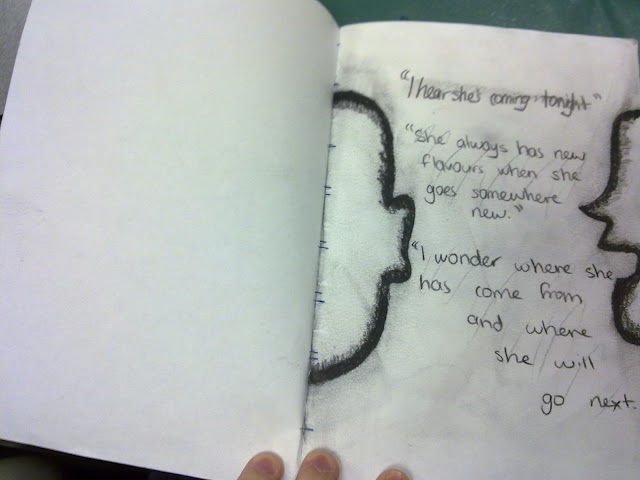 "I hear she's coming tonight"
"She always has new
flavours when she
goes somewhere
new."
"I wonder where she
has come from
and where
she will
go next.